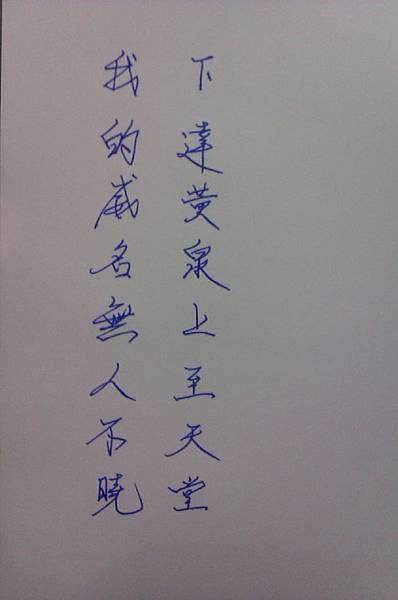 下達黃泉上至天堂
我的威名無人不曉